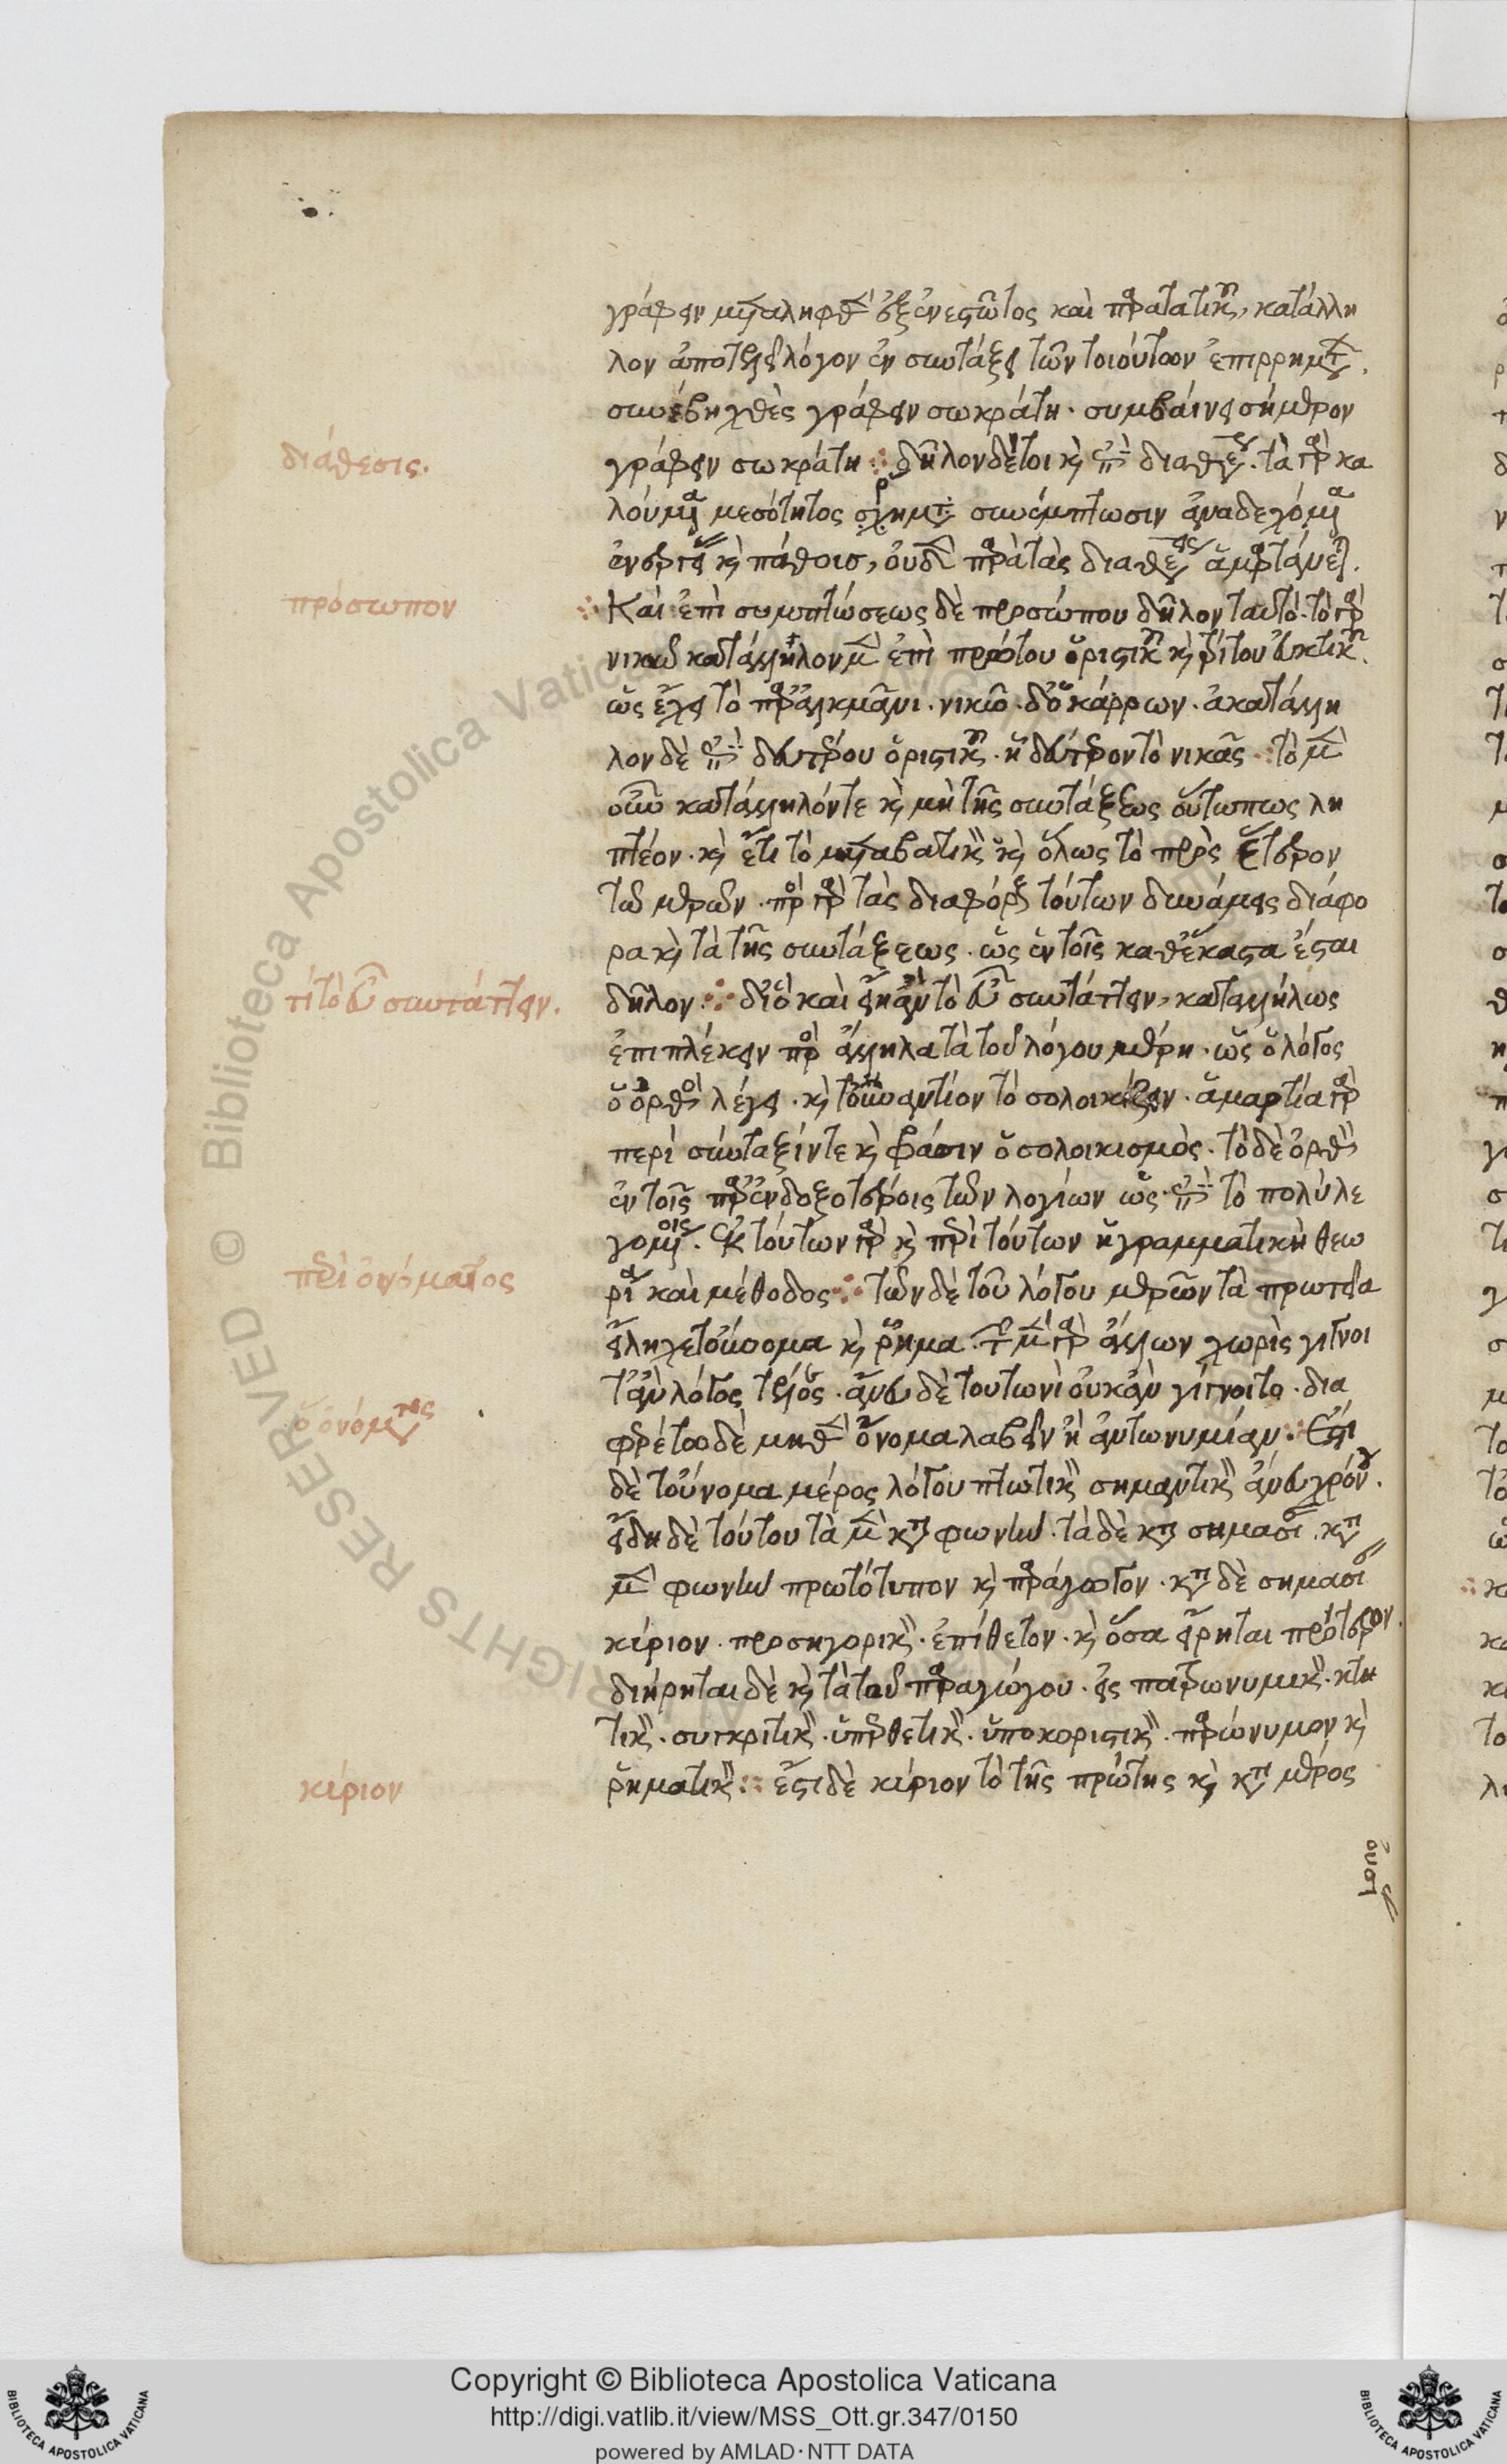 γράφειν μεταληφθὲν ἐξ ἐνεστῶτος καὶ παρατατικοῦ, κατάλλη
λον ἀποτελεῖ λόγον ἐν συντάξει τῶν τοιούτων ἐπιρρημάτων.
συνέβη χθὲς γράφειν σωκράτη· συμβαίνει σήμερον
διάθεσις.
γράφειν σωκράτη ⁘ δῆλον δέ τοι κἀπὶ διαθέσεως. τὰ γὰρ κα
λούμενα μεσότητος σχήματα συνέμπτωσιν ἀναδεχόμενα
ἐνεργείας καὶ πάθους, οὐδὲν παρὰ τὰς διαθέσεις ἁμαρτάνει.
πρόσωπον
⁘ Καὶ ἐπὶ συμπτώσεως δὲ προσώπου δῆλον ταυτό· τὸ γὰρ
νικῶ κατάλληλον μὲν ἐπὶ πρώτου ὁριστικοῦ καὶ τρίτου εὐκτικοῦ.
ὡς ἔχει τὸ παρ' ἀλκμᾶνι. νικῶ δ' ὁ κάρρων. ἀκατάλλη
λον δὲ ἐπὶ δευτέρου ὁριστικοῦ. ἢ δεύτερον τὸ νικᾶς ⁘ τὸ μὲν
οὖν κατάλληλόν τε καὶ μὴ τῆς συντάξεως οὕτω πως λη
πτέον. καὶ ἔτι τὸ μεταβατικὸν καὶ ὅλως τὸ πρὸς ἕτερον
τῶν μερῶν. πρὸς γὰρ τὰς διαφόρους τούτων δυνάμεις διάφο
ρα καὶ τὰ τῆς συντάξεως. ὡς ἐν τοῖς καθέκαστα ἔσται
τί τὸ εὖ συντάττειν.
δῆλον ⁘ διὸ καὶ εἴη ἂν τὸ εὖ συντάττειν, καταλλήλως
ἐπιπλέκειν πρὸς ἄλληλα τὰ τοῦ λόγου μέρη. ὡς ὁ λόγος
ὁ ὀρθὸς λέγει. καὶ τοὐναντίον τὸ σολοικίζειν. ἁμαρτία γὰρ
περὶ σύνταξίν τε καὶ φράσιν ὁ σολοικισμός. τὸ δὲ ὀρθὸν
ἐν τοῖς παρ' ἐνδοξοτέροις τῶν λογίων ὡς ἐπὶ τὸ πολὺ λε
γομένοις. ἐκ τούτων γὰρ καὶ περὶ τούτων ἡ γραμματικὴ θεω
περὶ ὀνόματος
ρία καὶ μέθοδος ⁘ τῶν δὲ τοῦ λόγου μερῶν τὰ πρωτεῖα
εἴληχε τοὔνομα καὶ ῥῆμα. τῶν μὲν γὰρ ἄλλων χωρὶς γίγνοι
τ' ἂν λόγος τέλειος. ἄνευ δὲ τουτωνὶ οὐκ ἂν γίγνοιτο. δια
ὁ ὀνόματος
φερέτω δὲ μηθὲν ὄνομα λαβεῖν ἢ ἀντωνυμίαν ⁘ Ἔστι
δὲ τοὔνομα μέρος λόγου πτωτικὸν σημαντικὸν ἄνευ χρόνου.
εἴδη δὲ τούτου τὰ μὲν κατὰ φωνὴν. τὰ δὲ κατὰ σημασίαν. κατὰ
μὲν φωνὴν πρωτότυπον καὶ παράγωγον. κατὰ δὲ σημασίαν
κύριον. προσηγορικὸν. ἐπίθετον. καὶ ὅσα εἴρηται πρότερον.
διήρηται δὲ καὶ τὰ τοῦ παραγώγου. εἰς πατρωνυμικὸν. κτη
τικὸν. συγκριτικὸν. ὑπερθετικὸν. ὑποκοριστικὸν. παρώνυμον καὶ
κύριον
ῥηματικὸν ⁘ ἔστι δὲ κύριον τὸ τῆς πρώτης καὶ κατὰ μέρος
οὐσίας
Copyright © Biblioteca Apostolica Vaticana
http://digi.vatlib.it/view/MSS_Ott.gr.347/0150
powered by AMLAD · NTT DATA